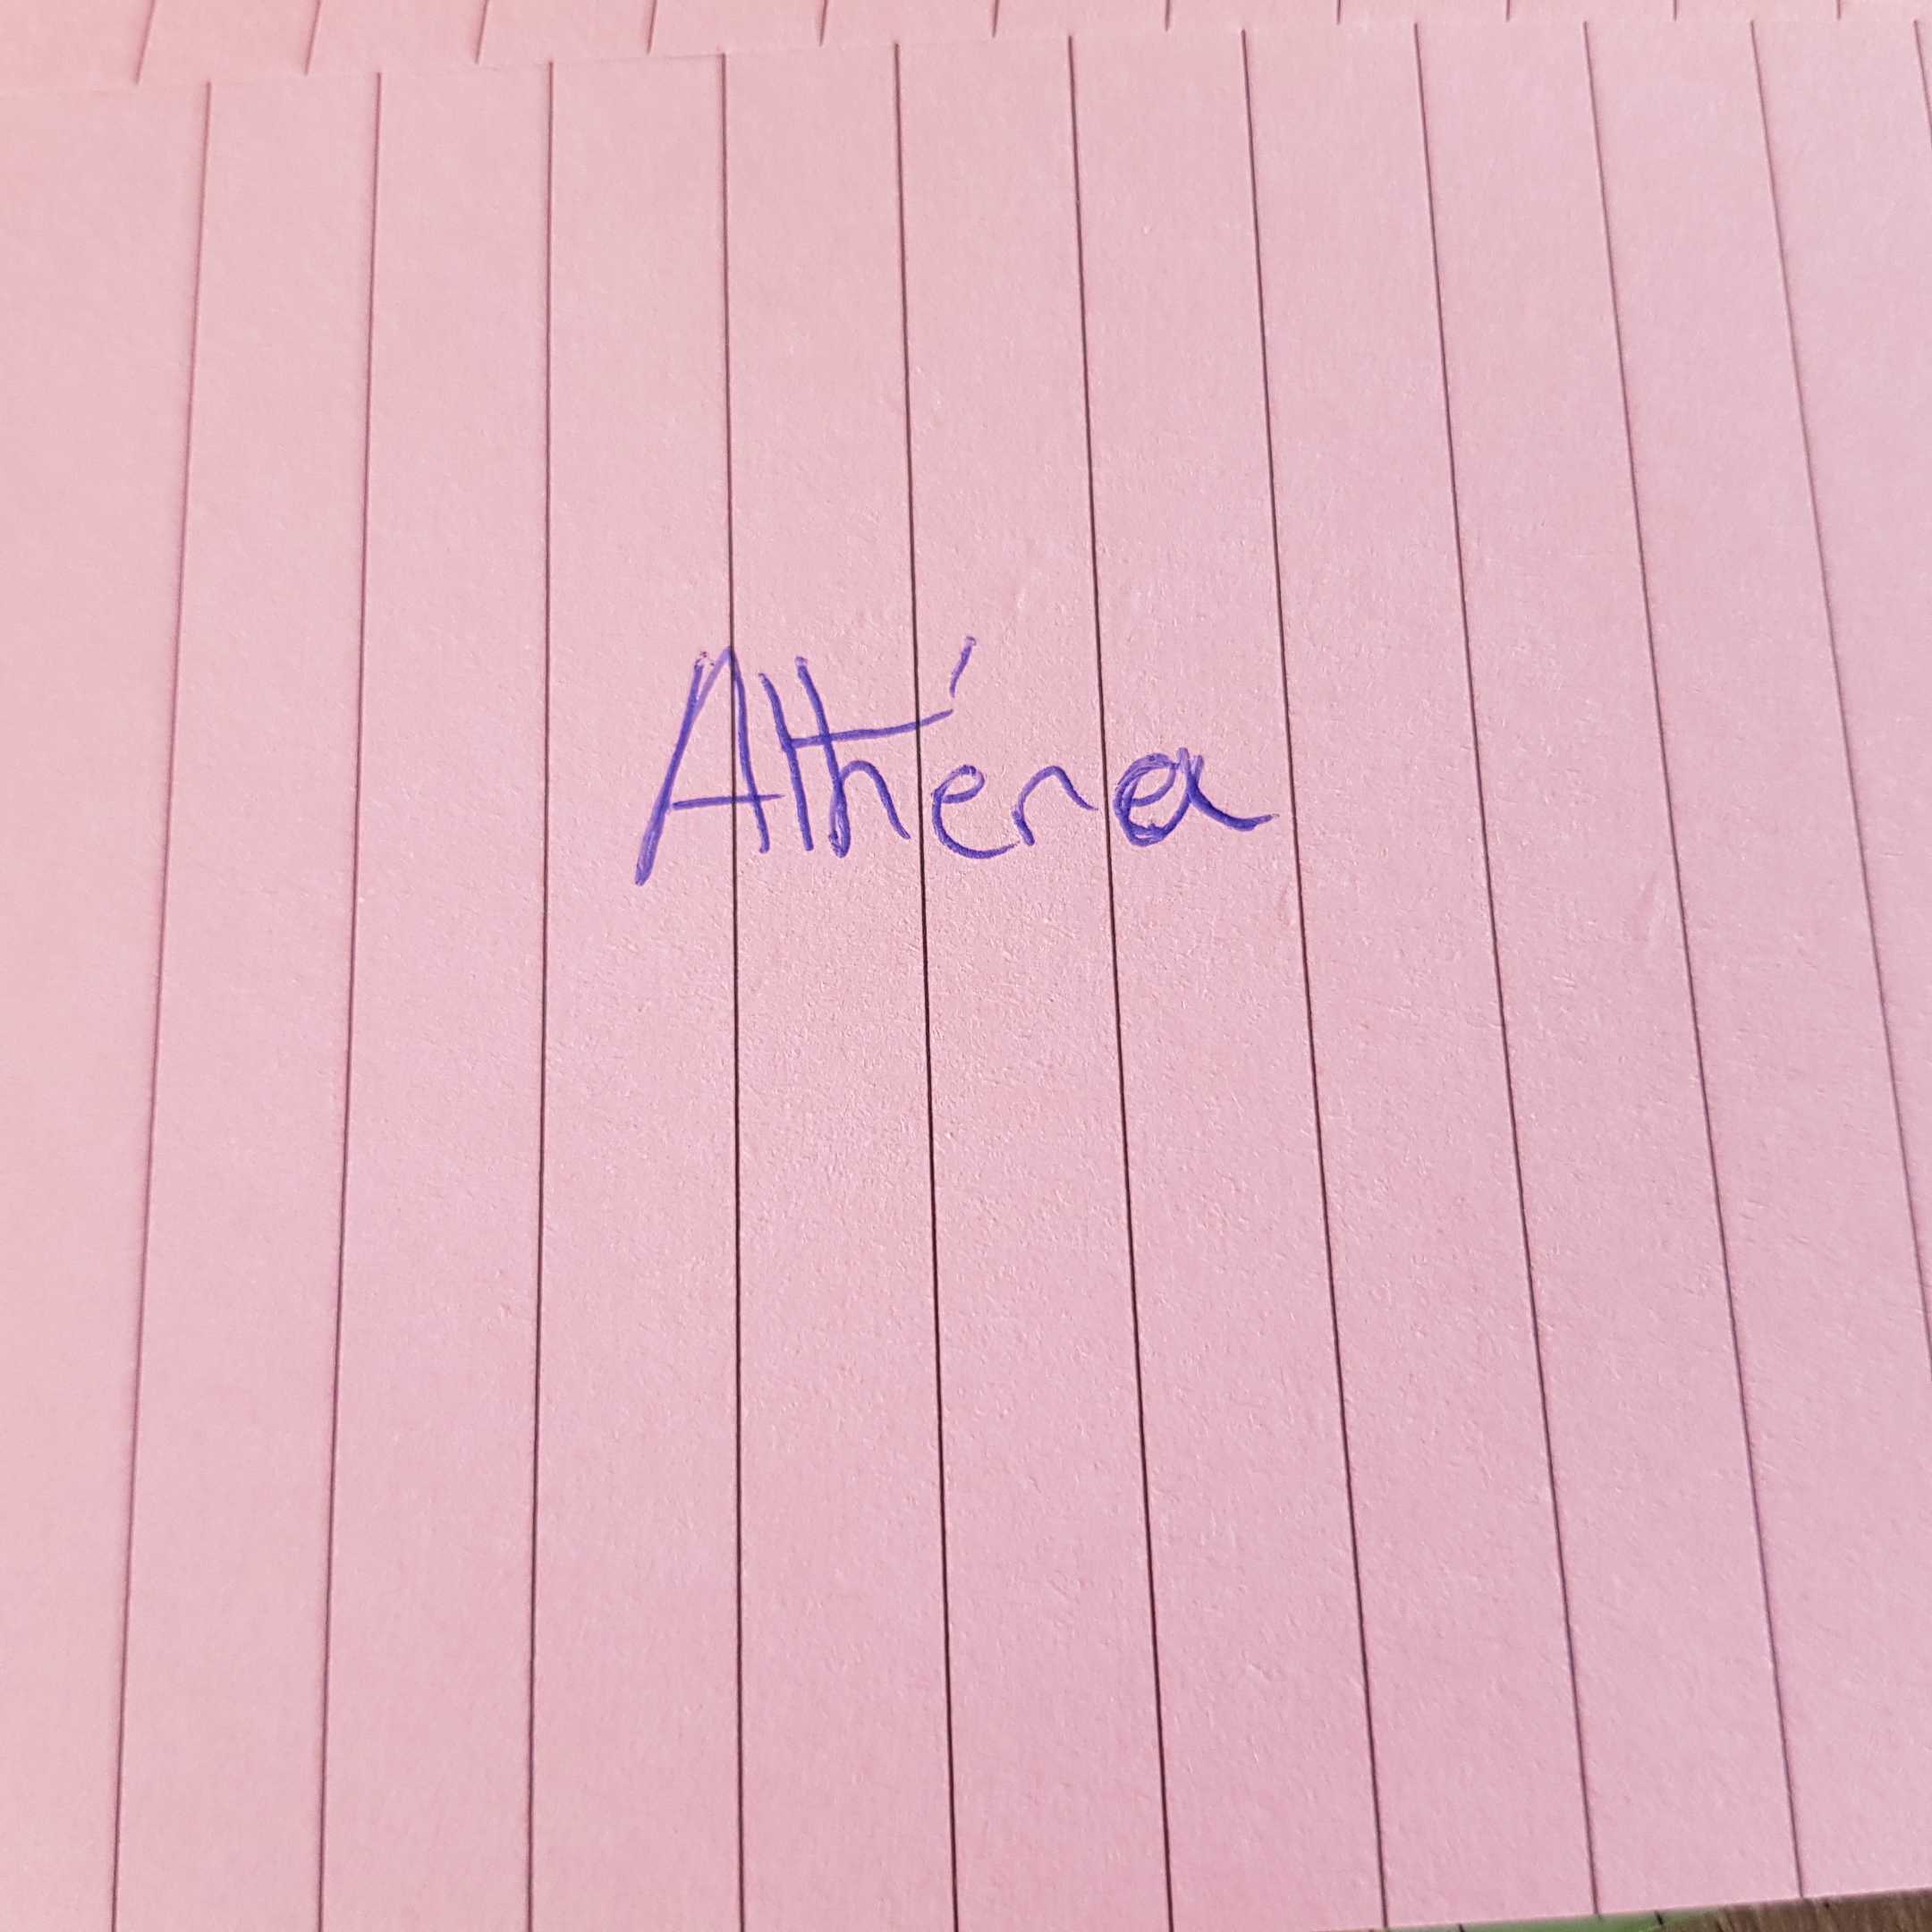 Athéna